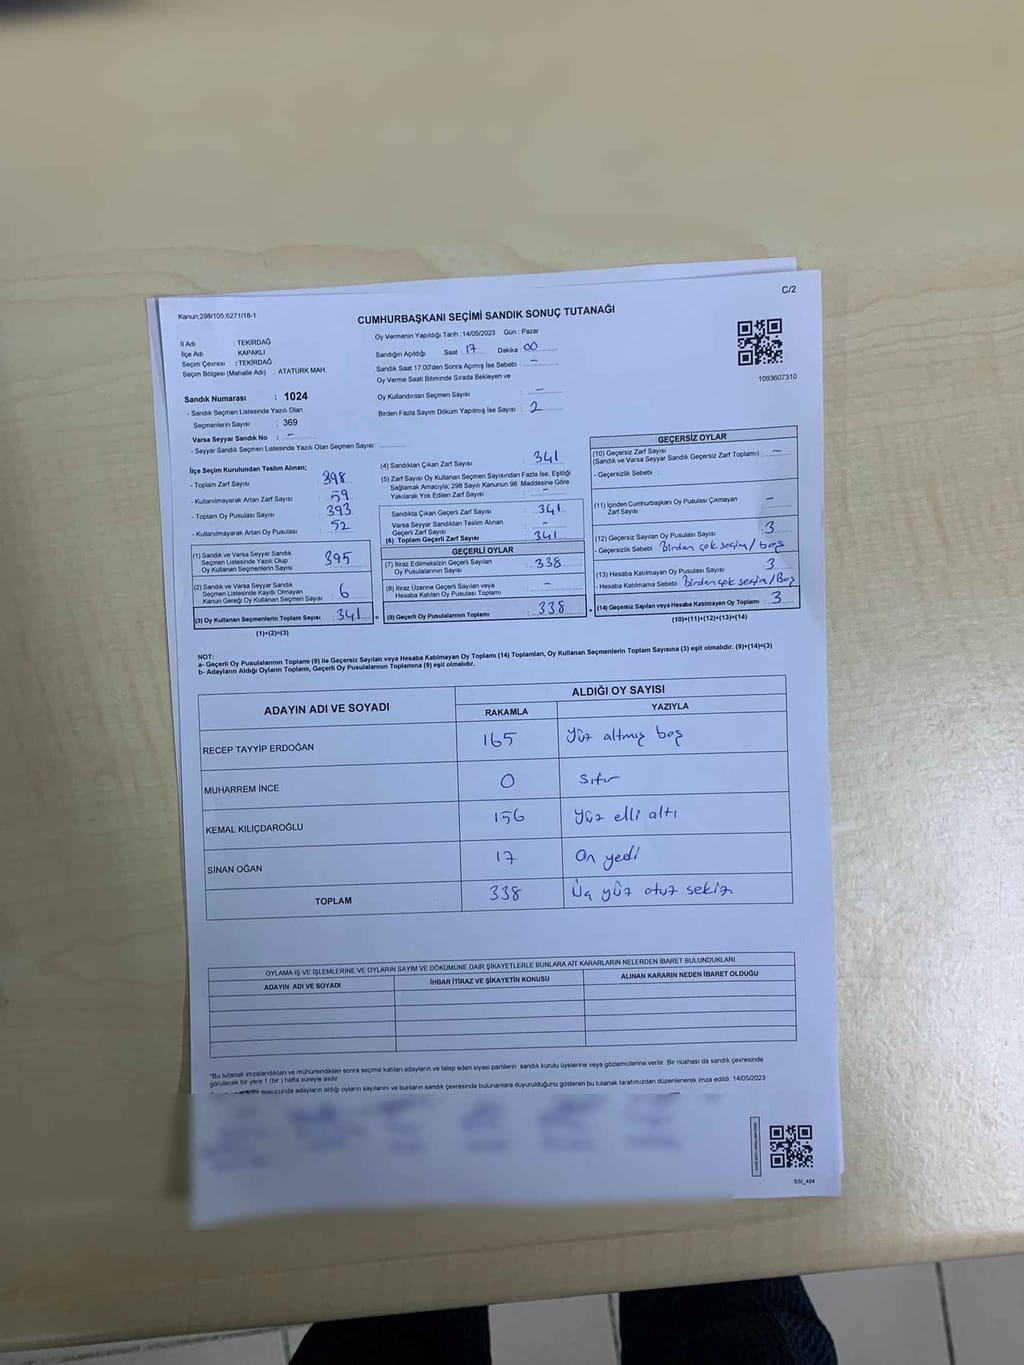 C/2
Kanun;298/105:6271/18-1
CUMHURBAŞKANI SEÇİMİ SANDIK SONUÇ TUTANAĞI
İl Adı : TEKİRDAĞ
İlçe Adı : KAPAKLI
Seçim Çevresi : TEKİRDAĞ
Seçim Bölgesi (Mahalle Adı) : ATATÜRK MAH.
Oy Vermenin Yapıldığı Tarih : 14/05/2023 Gün : Pazar
Sandığın Açıldığı Saat : 17 Dakika : 00
Sandık Saat 17.00'den Sonra Açımış İse Sebebi : -
Oy Verme Saati Bitiminde Sırada Bekleyen ve
Oy Kullandırılan Seçmen Sayısı : -
Birden Fazla Sayım Döküm Yapılmış İse Sayısı : 2
1093607310
Sandık Numarası : 1024
- Sandık Seçmen Listesinde Yazılı Olan
Seçmenlerin Sayısı : 369
Varsa Seyyar Sandık No : -
- Seyyar Sandık Seçmen Listesinde Yazılı Olan Seçmen Sayısı:
İlçe Seçim Kurulundan Teslim Alınan;
- Toplam Zarf Sayısı : 398
- Kullanılmayarak Artan Zarf Sayısı : 59
- Toplam Oy Pusulası Sayısı : 393
- Kullanılmayarak Artan Oy Pusulası : 52
(1) Sandık ve Varsa Seyyar Sandık
Seçmen Listesinde Yazılı Olup
Oy Kullanan Seçmenlerin Sayısı : 395
(2) Sandık ve Varsa Seyyar Sandık
Seçmen Listesinde Kayıtlı Olmayan
Kanun Gereği Oy Kullanan Seçmen Sayısı : 6
(3) Oy Kullanan Seçmenlerin Toplam Sayısı : 341
(1)+(2)=(3)
(4) Sandıktan Çıkan Zarf Sayısı : 341
(5) Zarf Sayısı Oy Kullanan Seçmen Sayısından Fazla İse, Eşitliği
Sağlamak Amacıyla; 298 Sayılı Kanunun 98. Maddesine Göre
Yakılarak Yok Edilen Zarf Sayısı : -
Sandıkta Çıkan Geçerli Zarf Sayısı : 341
Varsa Seyyar Sandıktan Teslim Alınan
Geçerli Zarf Sayısı : -
(6) Toplam Geçerli Zarf Sayısı : 341
GEÇERLİ OYLAR
(7) İtiraz Edilmeksizin Geçerli Sayılan
Oy Pusulalarının Sayısı : 338
(8) İtiraz Üzerine Geçerli Sayılan veya
Hesaba Katılan Oy Pusulası Toplamı : -
(9) Geçerli Oy Pusulalarının Toplamı : 338
GEÇERSİZ OYLAR
(10) Geçersiz Zarf Sayısı
(Sandık ve Varsa Seyyar Sandık Geçersiz Zarf Toplamı) : -
- Geçersizlik Sebebi :
(11) İçinden Cumhurbaşkanı Oy Pusulası Çıkmayan
Zarf Sayısı : -
(12) Geçersiz Sayılan Oy Pusulası Sayısı : 3
- Geçersizlik Sebebi : Birden çok seçim/boş
(13) Hesaba Katılmayan Oy Pusulası Sayısı : 3
- Hesaba Katılmama Sebebi : Birden çok seçim/Boş
(14) Geçersiz Sayılan veya Hesaba Katılmayan Oy Toplamı : 3
(10)+(11)+(12)+(13)=(14)
NOT:
a- Geçerli Oy Pusulalarının Toplamı (9) ile Geçersiz Sayılan veya Hesaba Katılmayan Oy Toplamı (14) Toplamları, Oy Kullanan Seçmenlerin Toplam Sayısına (3) eşit olmalıdır. (9)+(14)=(3)
b- Adayların Aldığı Oyların Toplamı, Geçerli Oy Pusulalarının Toplamına (9) eşit olmalıdır.
ADAYIN ADI VE SOYADI ALDIĞI OY SAYISI
RAKAMLA YAZIYLA
RECEP TAYYİP ERDOĞAN 165 Yüz altmış beş
MUHARREM İNCE 0 Sıfır
KEMAL KILIÇDAROĞLU 156 Yüz elli altı
SİNAN OĞAN 17 On yedi
TOPLAM 338 Üç yüz otuz sekiz
OYLAMA İŞ VE İŞLEMLERİNE VE OYLARIN SAYIM VE DÖKÜMÜNE DAİR ŞİKAYETLERLE BUNLARA AİT KARARLARIN NELERDEN İBARET BULUNDUKLARI
ADAYIN ADI VE SOYADI İHBAR İTİRAZ VE ŞİKAYETİN KONUSU ALINAN KARARIN NEDEN İBARET OLDUĞU
"Bu tutanak imzalandıktan ve mühürlendikten sonra seçime katılan adayların ve talep eden siyasi partilerin sandık kurulu üyelerine veya gözlemcilerine verilir. Bir nüshası da sandık çevresinde
görülecek bir yere 1 (bir) hafta süreyle asılır.
sonucunda adayların aldığı oyların sayılarını ve bunların sandık çevresinde bulunanlara duyurulduğunu gösteren bu tutanak tarafımızdan düzenlenerek imza edildi. 14/05/2023
SSI_404